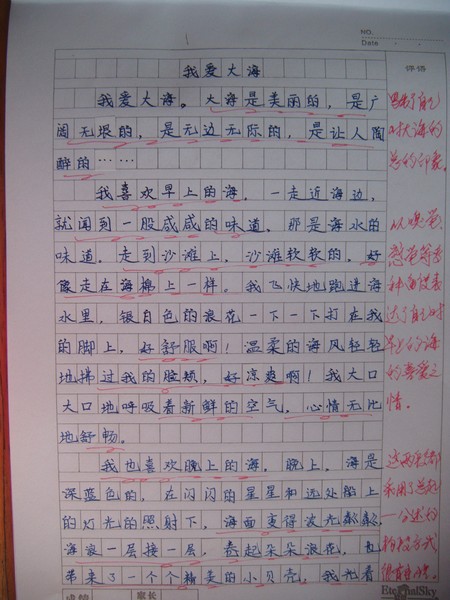 NO.
Date
评语
我爱大海
我爱大海。大海是美丽的，是广
阔无垠的，是无边无际的，是让人陶
醉的……
我喜欢早上的海。一走近海边，
就闻到一股咸咸的味道，那是海水的
味道。走到沙滩上，沙滩软软的，好
像走在海棉上一样。我飞快地跑进海
水里，银白色的浪花一下一下打在我
的脚上，好舒服啊！温柔的海风轻轻
地拂过我的脸颊，好凉爽啊！我大口
大口地呼吸着新鲜的空气，心情无比
地舒畅。
我也喜欢晚上的海。晚上，海是
深蓝色的，在闪闪的星星和远处船上
的灯光的照射下，海面变得波光粼粼，
海浪一层接一层，卷起朵朵浪花，
带来了一个个精美的小贝壳。我光着
自己
对大海的
总的印象。
达了自己对
早上的海
的喜爱之
情。
这两段都
采用了总起
家长
EternalSky